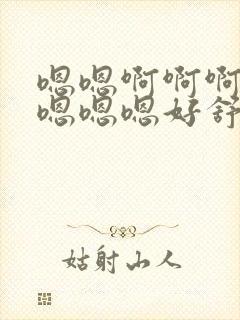 嗯嗯啊啊啊
嗯嗯嗯好舒
姑射山人